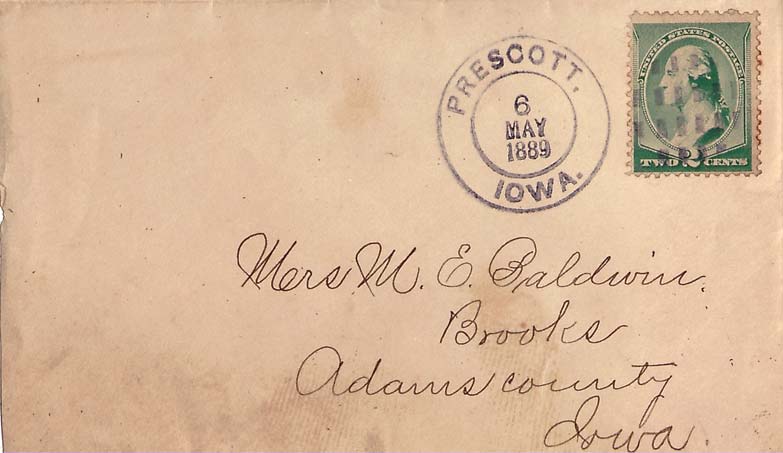 PRESCOTT,
6
MAY
1889
IOWA.
UNITED STATES POSTAGE
TWO 2 CENTS
Mers M. E. Baldwin.
Brooks
Adams county
Iowa.